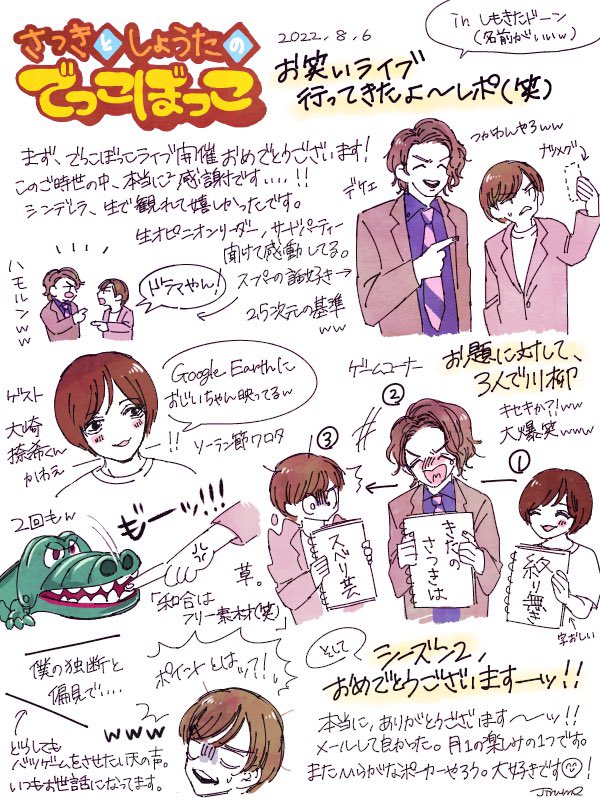 さつきとしょうたの
でっこぼっこ
2022.8.6
in しもきたドーン
(名前がいいw)
お笑いライブ
行ってきたよ〜レポ(笑)
まず、でっこぼっこライブ開催おめでとうございます!
このご時世の中、本当に感謝です....!!
シンデレラ、生で観れて嬉しかったです。
生オピニオンリーダー、サドパーティー
聞けて感動してる。
スプーの話好き→
2.5次元の基準
ww
ハモルンww
ドラマやん!
デケェ
つかわんやろww
ナツメグ
ゲスト
大崎
捺希くん
かわえ
Google Earthに
おじいちゃん映ってるw
!!
ソーラン節ワロタ
ゲームコーナー
お題に対して、
3人で川柳
キセキか?!ww
大爆笑www
①
②
③
終り無き
きたの
さつきは
スベり芸
字おしい
2回もw
もーッ!!!
草。
「和合は
フリー素材(笑)」
僕の独断と
偏見で....
ポイントとはッ?!
www
どうしても
バツゲームをさせたい天の声。
いつもお世話になってます。
そして
シーズン2、
おめでとうございますーッ!!
本当に、ありがとうございます〜〜ッ!!
メールして良かった。月1の楽しみの1つです。
またひらがなポーカーやろう。大好きです!